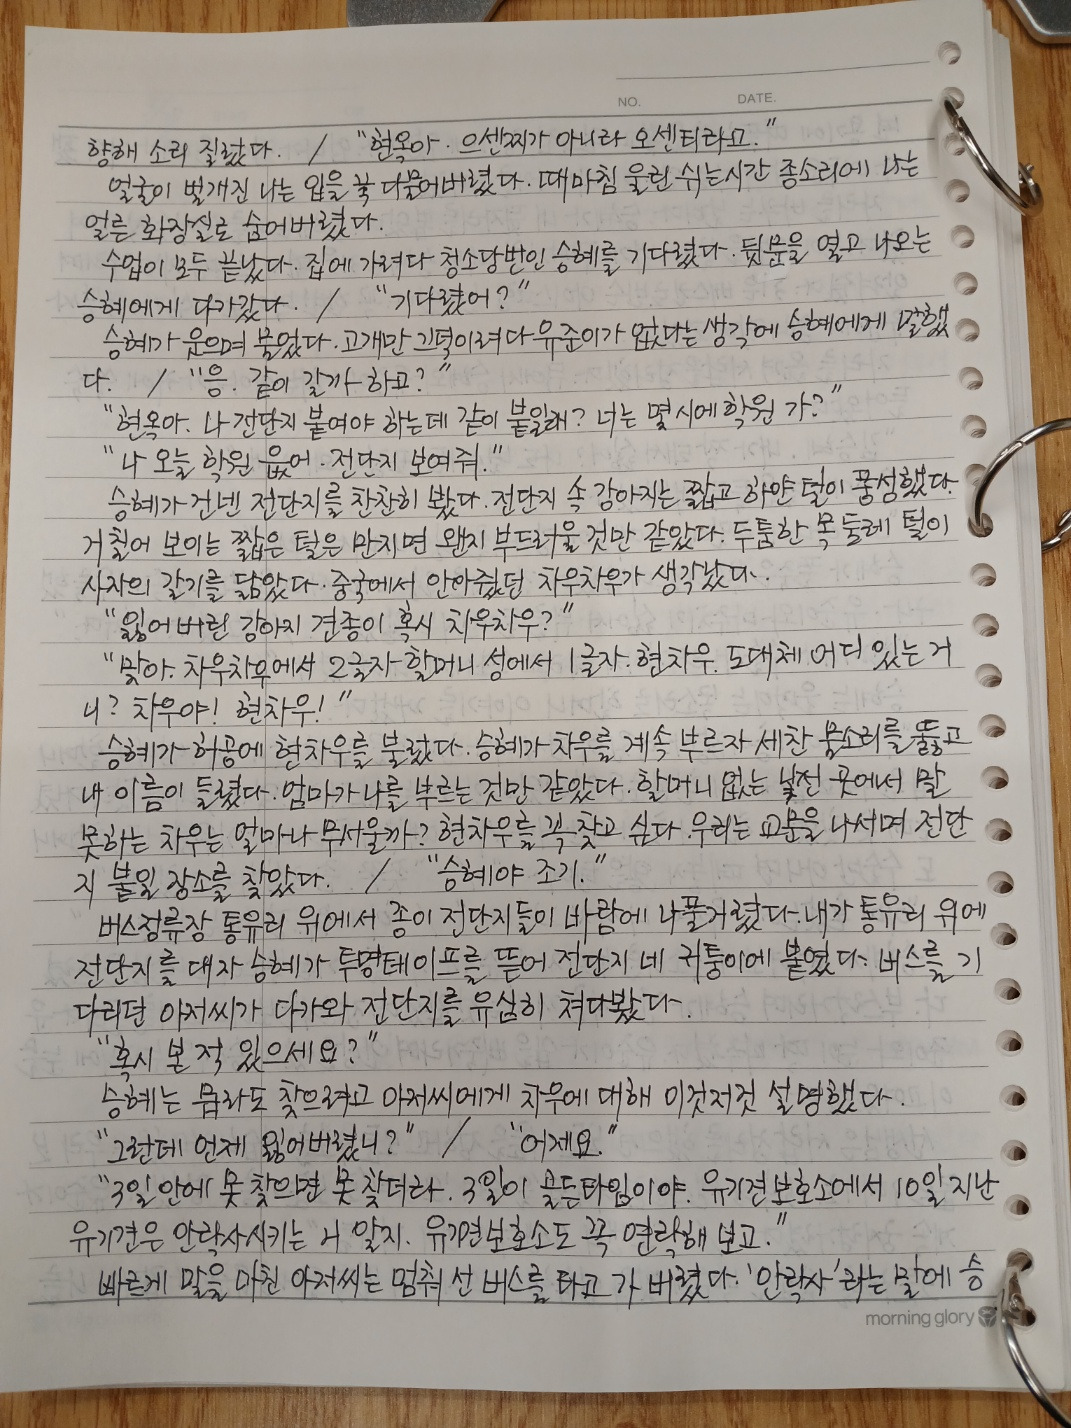 NO. DATE.
향해 소리 질렀다. / "현옥아. 으센찌가 아니라 오센티라고."
얼굴이 벌개진 나는 입을 꾹 다물어버렸다. 때마침 울린 쉬는시간 종소리에 나는
얼른 화장실로 숨어버렸다.
수업이 모두 끝났다. 집에 가려다 청소당번인 승혜를 기다렸다. 뒷문을 열고 나오는
승혜에게 다가갔다. / "기다렸어?"
승혜가 웃으며 물었다. 고개만 끄덕이려다 유준이가 없다는 생각에 승혜에게 말했
다. / "응. 같이 갈까 하고?"
"현옥아. 나 전단지 붙여야 하는데 같이 붙일래? 너는 몇 시에 학원 가?"
"나 오늘 학원 읎어. 전단지 보여줘."
승혜가 건넨 전단지를 찬찬히 봤다. 전단지 속 강아지는 짧고 하얀 털이 풍성했다.
거칠어 보이는 짧은 털은 만지면 왠지 부드러울 것만 같았다. 두툼한 목 둘레 털이
사자의 갈기를 닮았다. 중국에서 안아줬던 차우차우가 생각났다.
"잃어버린 강아지 견종이 혹시 차우차우?"
"맞아. 차우차우에서 2글자 할머니 성에서 1글자. 현차우. 도대체 어디 있는 거
니? 차우야! 현차우!"
승혜가 허공에 현차우를 불렀다. 승혜가 차우를 계속 부르자 세찬 물소리를 뚫고
내 이름이 들렸다. 엄마가 나를 부르는 것만 같았다. 할머니 없는 낯선 곳에서 말
못하는 차우는 얼마나 무서울까? 현차우를 꼭 찾고 싶다. 우리는 교문을 나서며 전단
지 붙일 장소를 찾았다. / "승혜야 조기."
버스정류장 통유리 위에서 종이 전단지들이 바람에 나풀거렸다. 내가 통유리 위에
전단지를 대자 승혜가 투명테이프를 뜯어 전단지 네 귀퉁이에 붙였다. 버스를 기
다리던 아저씨가 다가와 전단지를 유심히 쳐다봤다.
"혹시 본 적 있으세요?"
승혜는 뭐라도 찾으려고 아저씨에게 차우에 대해 이것저것 설명했다.
"그런데 언제 잃어버렸니?" / "어제요."
"3일 안에 못 찾으면 못 찾더라. 3일이 골든타임이야. 유기견보호소에서 10일 지난
유기견은 안락사시키는 거 알지. 유기견보호소도 꼭 연락해 보고."
빠르게 말을 마친 아저씨는 멈춰 선 버스를 타고 가 버렸다. '안락사'라는 말에 승
morning glory